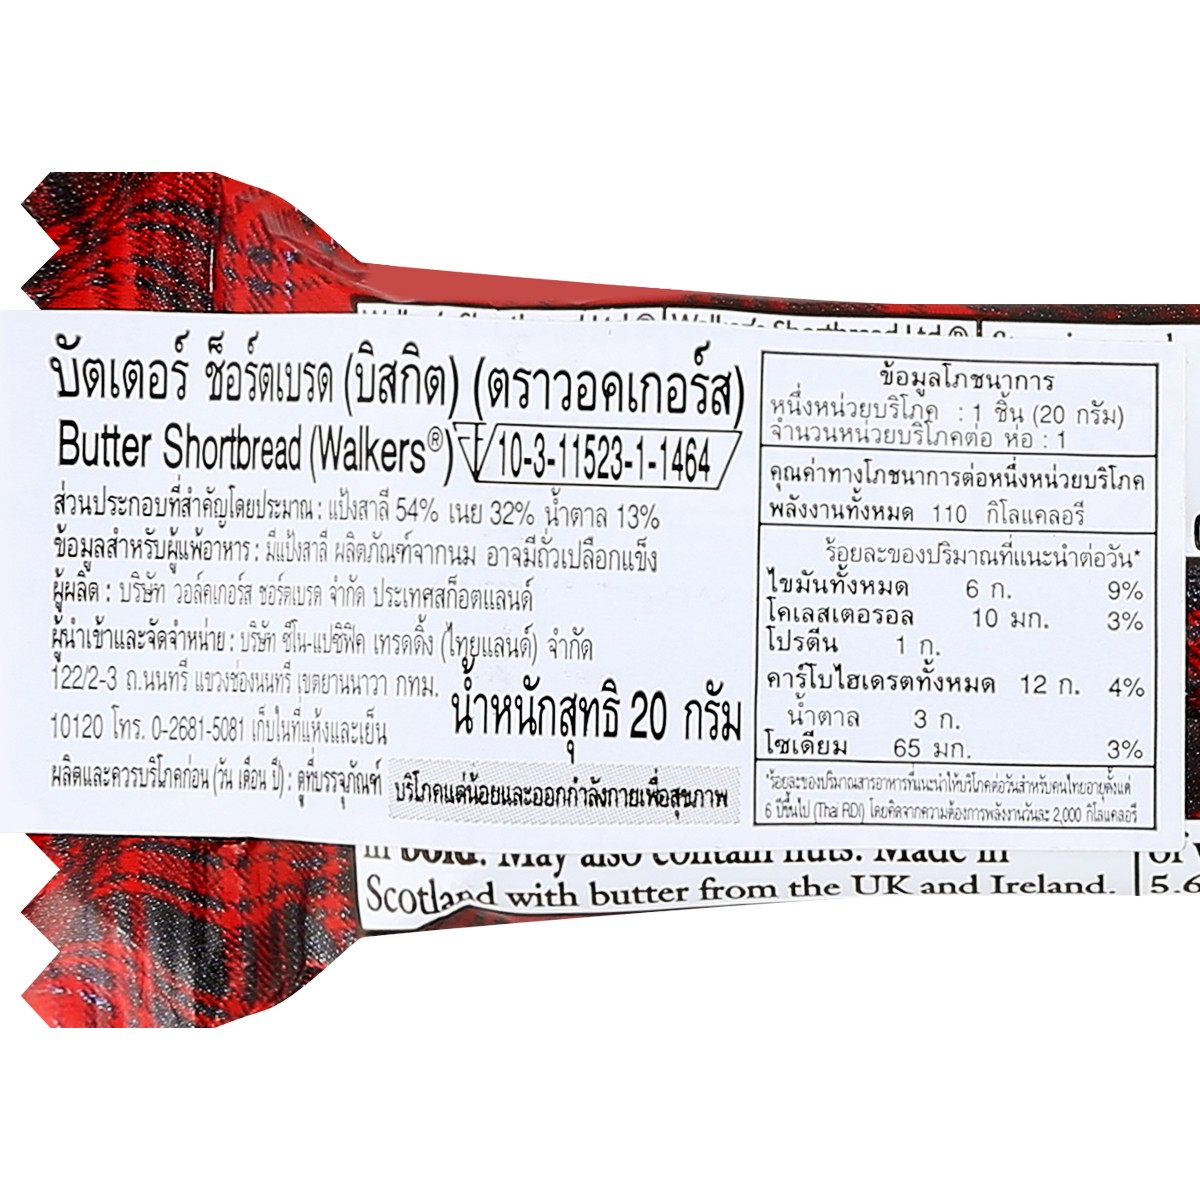 บัตเตอร์ ช็อร์ตเบรด (บิสกิต) (ตราวอคเกอร์ส)
Butter Shortbread (Walkers®) 10-3-11523-1-1464
ส่วนประกอบที่สำคัญโดยประมาณ : แป้งสาลี 54% เนย 32% น้ำตาล 13%
ข้อมูลสำหรับผู้แพ้อาหาร : มีแป้งสาลี ผลิตภัณฑ์จากนม อาจมีถั่วเปลือกแข็ง
ผู้ผลิต : บริษัท วอล์คเกอร์ส ชอร์ตเบรด จำกัด ประเทศสก็อตแลนด์
ผู้นำเข้าและจัดจำหน่าย : บริษัท ซีโน-แปซิฟิค เทรดดิ้ง (ไทยแลนด์) จำกัด
122/2-3 ถ.นนทรี แขวงช่องนนทรี เขตยานนาวา กทม.
10120 โทร. 0-2681-5081 เก็บในที่แห้งและเย็น
น้ำหนักสุทธิ 20 กรัม
ผลิตและควรบริโภคก่อน (วัน เดือน ปี) : ดูที่บรรจุภัณฑ์
บริโภคแต่น้อยและออกกำลังกายเพื่อสุขภาพ
ข้อมูลโภชนาการ
หนึ่งหน่วยบริโภค : 1 ชิ้น (20 กรัม)
จำนวนหน่วยบริโภคต่อ ห่อ : 1
คุณค่าทางโภชนาการต่อหนึ่งหน่วยบริโภค
พลังงานทั้งหมด 110 กิโลแคลอรี
ร้อยละของปริมาณที่แนะนำต่อวัน*
ไขมันทั้งหมด 6 ก. 9%
โคเลสเตอรอล 10 มก. 3%
โปรตีน 1 ก.
คาร์โบไฮเดรตทั้งหมด 12 ก. 4%
น้ำตาล 3 ก.
โซเดียม 65 มก. 3%
*ร้อยละของปริมาณสารอาหารที่แนะนำให้บริโภคต่อวันสำหรับคนไทยอายุตั้งแต่
6 ปีขึ้นไป (Thai RDI) โดยคิดจากความต้องการพลังงานวันละ 2,000 กิโลแคลอรี
in bold. May also contain nuts. Made in
Scotland with butter from the UK and Ireland.
5.6